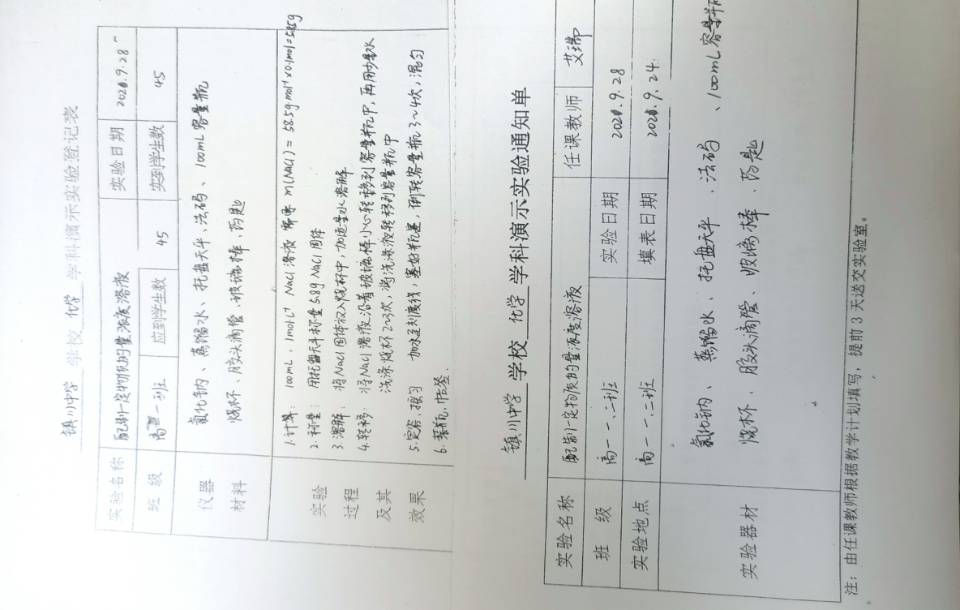 镇川中学 学校 化学 学科演示实验登记表
实验名称 配制一定物质的量浓度溶液 实验日期 2020.9.28
班 级 高一一班 应到学生数 45 实到学生数 45
仪器 氯化钠、蒸馏水、托盘天平、法码、100mL容量瓶
材料 烧杯、胶头滴管、玻璃棒、药匙
实验
过程
及其
效果
1.计算: 100mL 1mol·L⁻¹ NaCl溶液 需要 m(NaCl) = 58.5g·mol⁻¹×0.1mol=5.85g
2.称量: 用托盘天平称量5.8g NaCl固体
3.溶解: 将NaCl固体放入烧杯中,加适量水溶解
4.转移: 将NaCl溶液沿着玻璃棒小心转移到容量瓶中,再用少量水
洗涤烧杯2~3次,将洗涤液转移到容量瓶中
5.定容、摇匀 加水至刻度线,塞好瓶塞,倒转容量瓶3~4次,混匀
6.装瓶,贴签.
镇川中学 学校 化学 学科演示实验通知单
实验名称 配制一定物质的量浓度溶液 任课教师 艾瑞
班 级 高一一、二班 实验日期 2020.9.28
实验地点 高一一、二班 填表日期 2020.9.24.
实验器材 氯化钠、蒸馏水、托盘天平、法码、100mL容量瓶
烧杯、胶头滴管、玻璃棒、药匙
注:由任课教师根据教学计划填写,提前3天送交实验室。